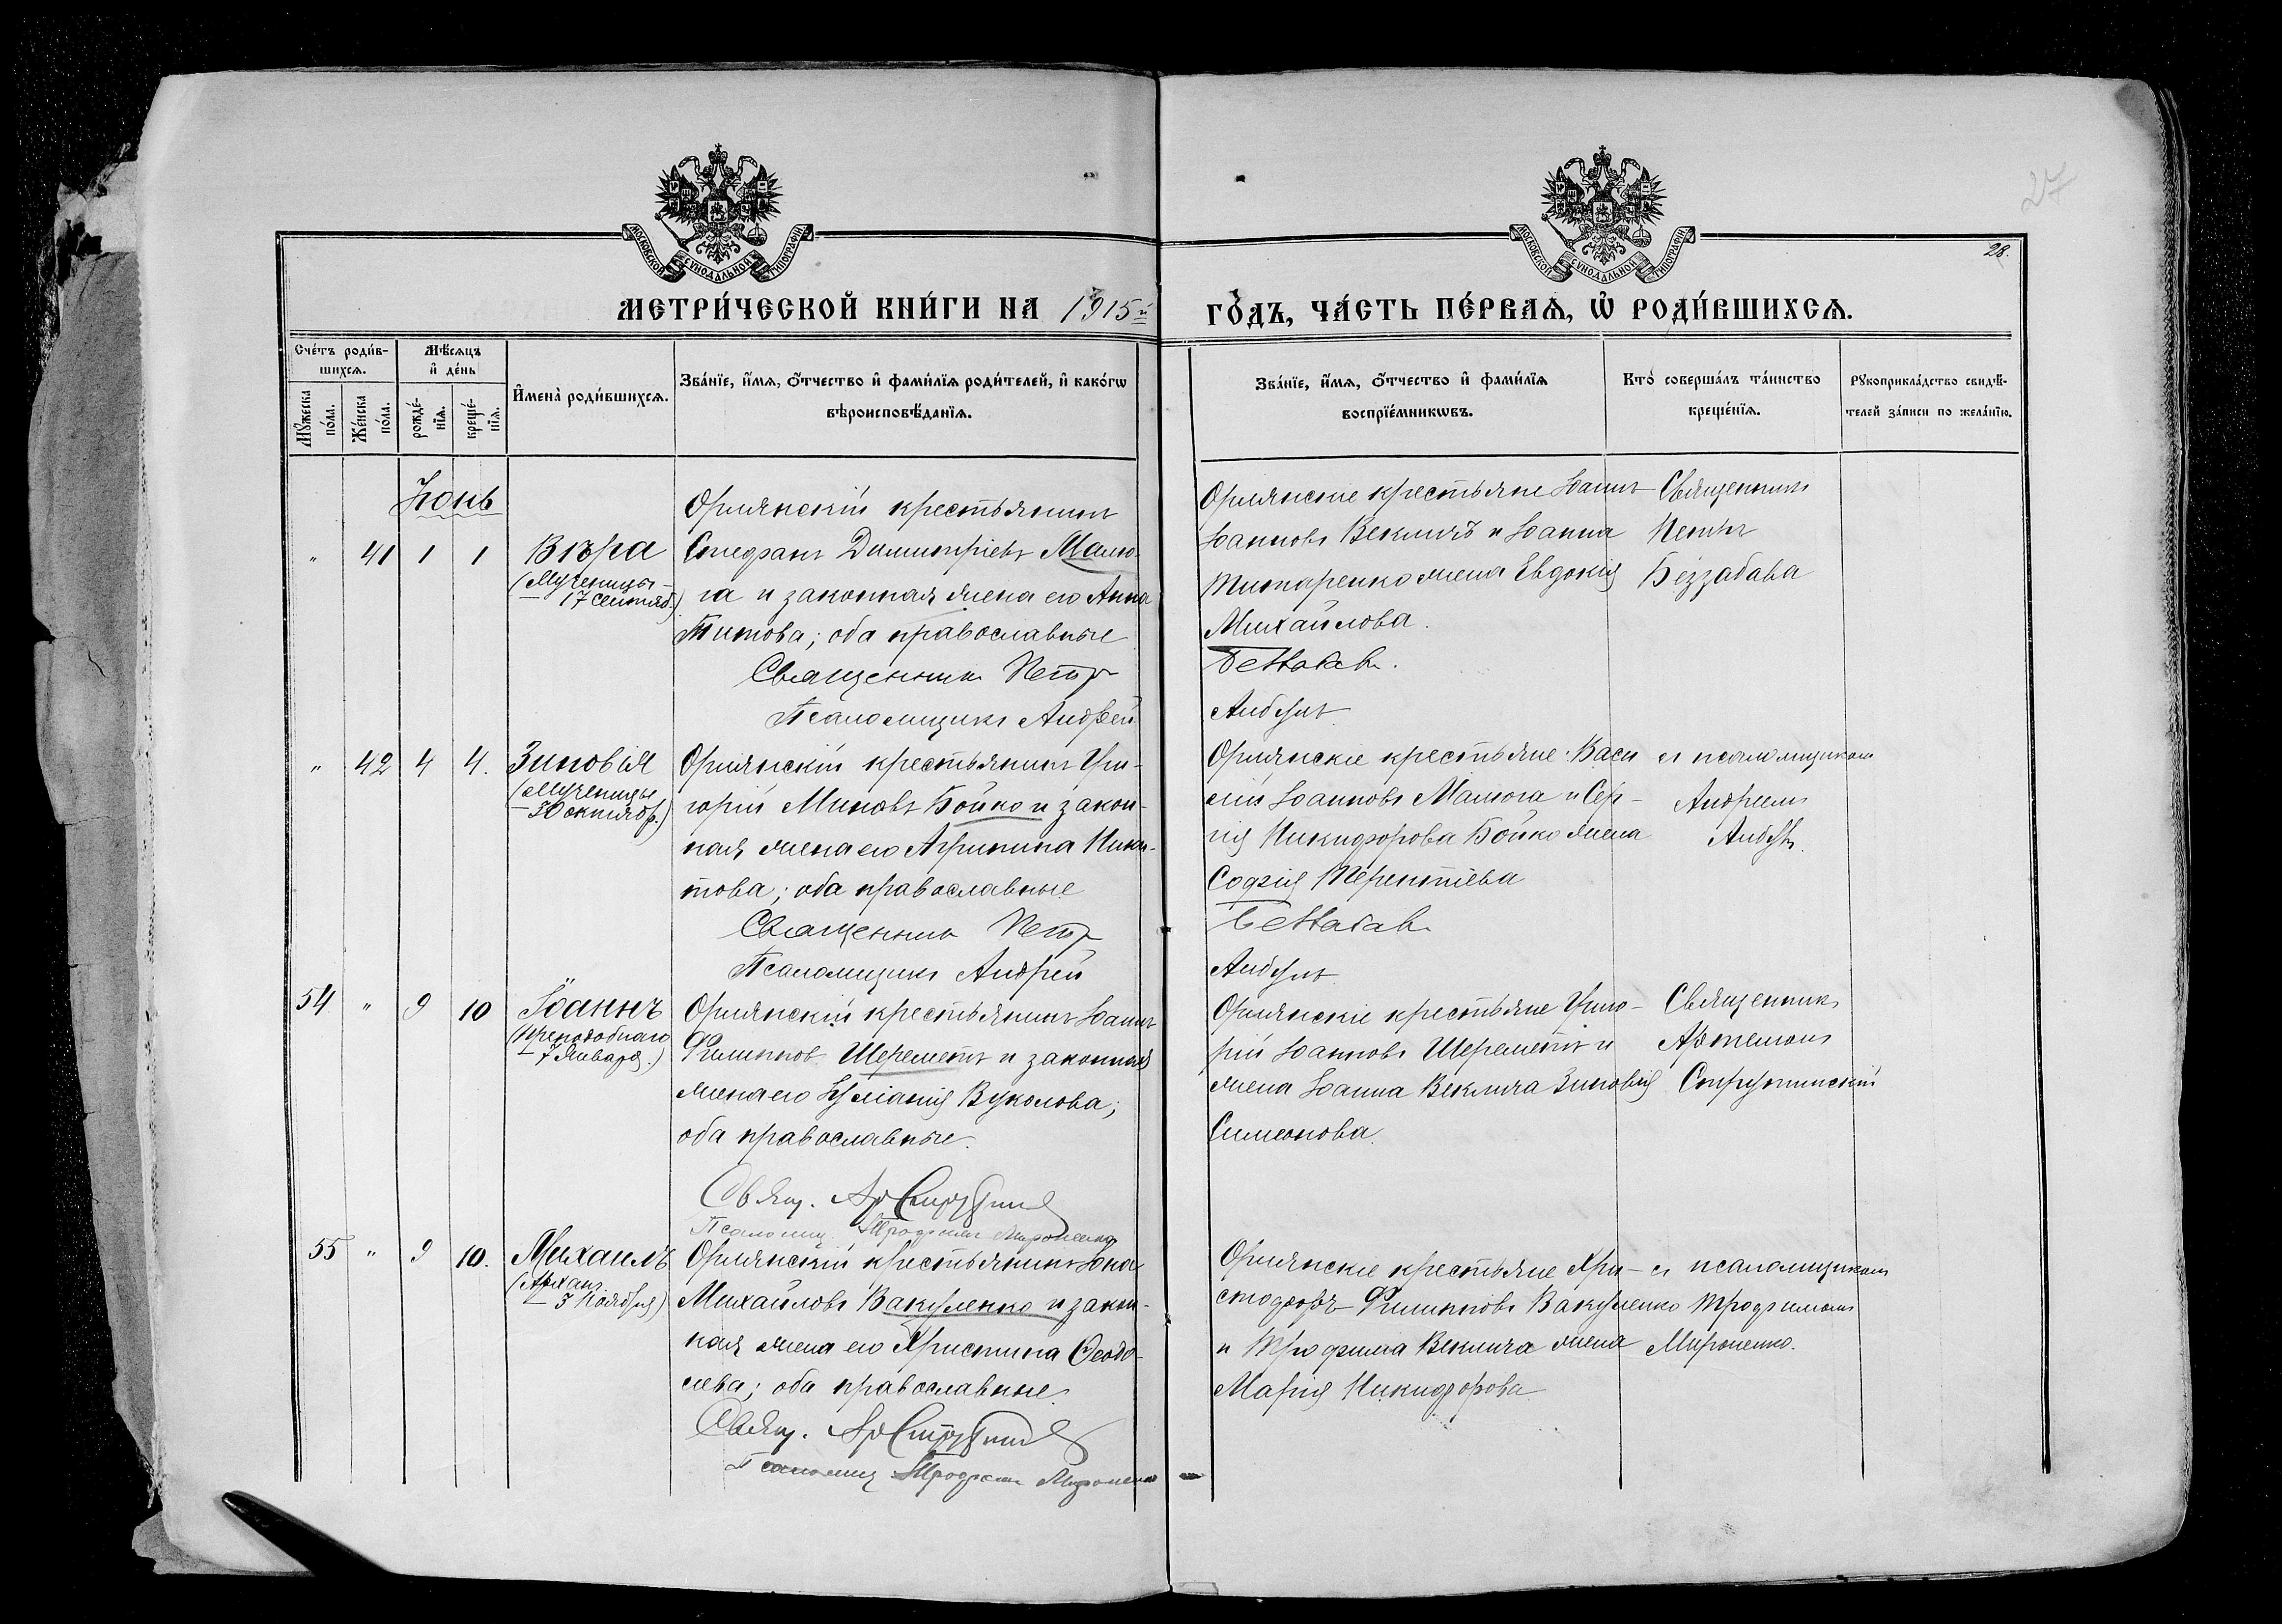 27
28.
МОСКОВСКОЙ СѴНОДАЛЬНОЙ ТИПОГРАФІИ
МОСКОВСКОЙ СѴНОДАЛЬНОЙ ТИПОГРАФІИ
МЕТРИ́ЧЕСКОЙ КНИ́ГИ НА 1915й
ГО́ДЪ, ЧА́СТЬ ПЕ́РВАѦ, Ѡ҆ РОДИ́ВШИХСѦ.
Сче́тъ роди́в-
шихсѧ.
Мꙋ́жеска по́ла.
Же́нска по́ла.
Мѣ́сѧцъ
и҆ де́нь
рожде́-
нїѧ.
креще́-
нїѧ.
И҆мена̀ роди́вшихсѧ.
Зва́нїе, и҆́мѧ, ѻ҆́тчество и҆ фами́лїѧ роди́телей, и҆ како́гѡ
вѣроисповѣ́данїѧ.
Зва́нїе, и҆́мѧ, ѻ҆́тчество и҆ фами́лїѧ
воспрїе́мникѡвъ.
Кто̀ соверша́лъ та́инство
креще́нїѧ.
Рꙋкоприкла́дство свидѣ́-
телей за́писи по жела́нїю.
Іюнь
" 41 1 1
Вѣра
(Мученицы
17 Сентяб.)
Орлянскій крестьянинъ
Стефанъ Димитріевъ Малю-
га и законная жена его Анна
Титова; оба православные
Священникъ Петр
Псаломщикъ Андрей
Орлянскіе крестьяне Іоаннъ
Іоанновъ Векличъ и Іоанна
Титаренко жена Евдокія
Михайлова.
Беззабав.
Священникъ
Петръ
Беззабава
" 42 4 4.
Зиновія
(Мученицы
30 октябр.)
Орлянскій крестьянинъ Гри-
горій Миновъ Бойко и закон-
ная жена его Агрипина Ники-
това; оба православные
Священникъ Петр
Псаломщикъ Андрей
Орлянскіе крестьяне: Васи
лій Іоанновъ Малюга и Сер-
гія Никифорова Бойко жена
Софія Терентіева
Беззабав.
съ псаломщикомъ
Андреемъ
54 " 9 10
Іоаннъ
(Преподобнаго
7 Января.)
Орлянскій крестьянинъ Іоаннъ
Филипповъ Шереметъ и законная
жена его Іуліанія Вуколова;
оба православные.
Свящ. Ар Струтинс
Псаломщ. Трофимъ Мироненко
Орлянскіе крестьяне Григо-
рій Іоанновъ Шереметъ и
жена Іоанна Веклича Зиновія
Симеонова.
Священникъ
Артемонъ
Струтинскій
55 " 9 10.
Михаилъ
(Архан.
8 Ноября)
Орлянскій крестьянинъ Іона
Михайловъ Вакуленко и закон-
ная жена его Христина Ѳеодо-
Свящ. Ар Струтинс
Псаломщ Трофимъ Мироненко
оба православные.
Орлянскіе крестьяне Хри-
стофоръ Филипповъ Вакуленко
и Трофима Веклича жена
Марія Никифорова.
съ псаломщикомъ
Трофимомъ
Мироненко.